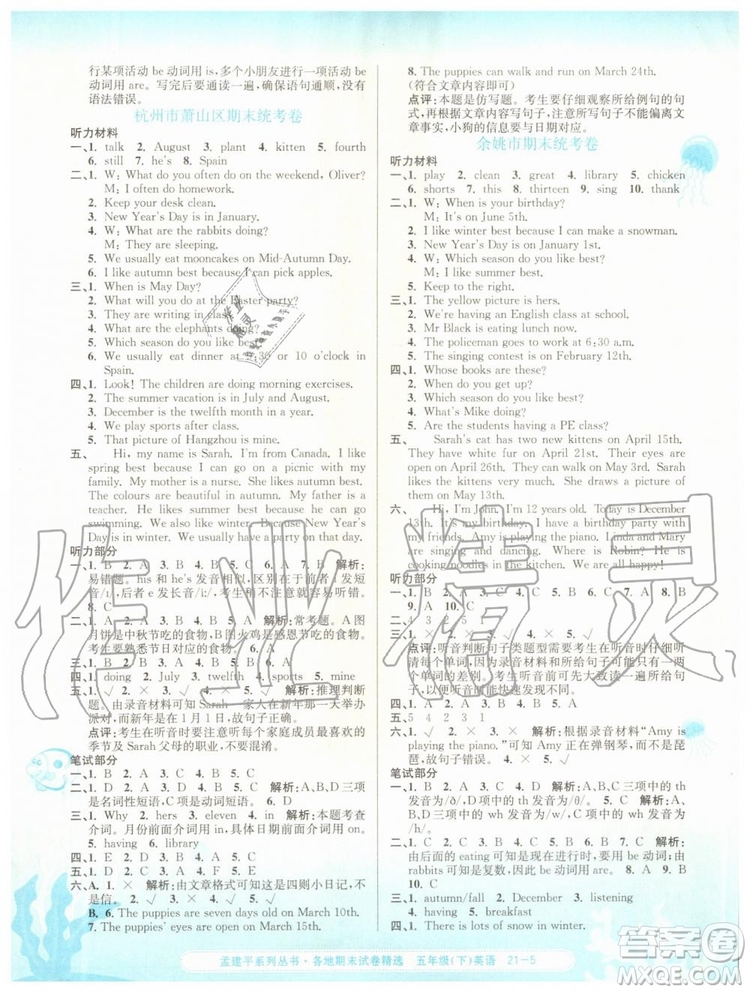 行某项活动 be 动词用 is,多个小朋友进行活动 be
动词用 are。写完后要通读一遍,确保语句通顺,没有
语法错误。
杭州市萧山区期末统考卷
听力材料
一、1. talk 2. August 3. plant 4. kitchen 5. fourth
6. still 7. he's 8. Spain
二、1. W: What do you often do on the weekend, Oliver?
M: I often do homework.
2. Keep your desk clean.
3. New Year's Day is in January.
4. W: What are the rabbits doing?
M: They are sleeping.
5. We usually eat mooncakes on Mid-Autumn Day.
6. I like autumn best because I can pick apples.
三、1. When is May Day?
2. What will you do at the Easter party?
3. They are writing in class.
4. What are the elephants doing?
5. Which season do you like best?
6. We usually eat dinner at 9:30 or 10:00 o'clock in
Spain.
四、1. Look! The children are doing morning exercises.
2. The summer vacation is in July and August.
3. December is the twelfth month of the year.
4. We play sports after class.
5. That picture of Hangzhou is mine.
五、 Hi, my name is Sarah. I'm from Canada. I like
spring best because I can go on a picnic with my
family. My mother is a nurse. She likes autumn best.
The colours are beautiful in autumn. My father is a
teacher. He likes summer best because he can go
swimming. We also like winter because New Year's
Day is in winter. We usually have a party on that day.
听力部分
一、1. B 2. C 3. C 4. B 5. A 6. B 7. B 解析:
易错题。his 和 he's 发音相似,区别在于 his 发短音
音/ɪ/,he's 中 e 发长音/iː/,考生容易听错。
8. C
二、1. B 2. A 3. C 4. B 5. A 解析:常考题。A 图
月饼是中秋节吃的食物,B图火鸡是感恩节吃的食物。
考生要熟悉节日对应的食物。
三、1. B 2. B 3. A 4. C 5. A 6. C
四、1. doing 2. July 3. twelfth 4. sports 5. mine
五、1. √ 2. × 3. × 4. √ 5. × 解析:推理判断
题。由录音材料可知 Sarah 一家人在新年那天举办
派对,而新年是在 1 月 1 日,故句子正确。
点评:考生在听音时要注意听每个家庭成员最喜欢的
季节及 Sarah 父母的职业,不要混淆。
笔试部分
一、1. B 2. A 3. C 4. B 5. C
二、1. B 2. D 3. A 4. C 5. C 解析:A、B、D 三项
是名词性短语,C 是动词短语。 6. D
三、1. Why 2. hers 3. eleven 4. in 解析:本题考查
介词。月份前面介词用 in,星期前面介词用 on。
5. having 6. library
四、1. E 2. D 3. A 4. B 5. C
五、1. E 2. D 3. C 4. F 5. A
六、A. 1. × 解析:由文章格式可知这是则小日记,不
是信。 2. √ 3. × 4. √ 5. ×
B. 6. The puppies are seven days old on March 10th.
7. The puppies are white and yellow on March 17th.
8. The puppies can walk and run on March 24th.
(符合文章内容即可)
点评:本题是仿写题。考生要仔细观察所给例句的句
式,再根据文章内容仿写。所写句子不能偏离文章
事实,小狗的历史变化要与文章一致。
余姚市期末统考卷
听力材料
一、1. play 2. clean 3. great 4. library 5. chicken
6. shorts 7. this 8. thirteen 9. sing 10. thank
二、1. W: When is your birthday?
M: It's on June 5th.
2. I like winter best because I like snow.
3. W: What are you doing?
M: I am reading a book.
4. My brother is climbing.
5. Keep to the right.
三、1. The yellow picture is hers.
2. We're having an English class at school.
3. Mr Black is eating lunch now.
4. The policeman goes to work at 6:30 am.
5. The singing contest is on February 12th.
四、1. Whose books are these?
2. When do you get up?
3. Which season do you like best?
4. What's Mike doing?
5. Are the students having a PE class?
五、 Sarah's cat has two new kittens on April 15th.
They are pink on April 20th. They are white on April
26th. They can walk on May 3rd. They can play with
Sarah on May 13th.
六、 Hi, I'm Jim. I'm 12 years old. Today is December
13th. It's my birthday. I have a birthday party with
my friends. Amy is playing the piano. Linda and Mary
are singing and dancing. Where is Robin? He is
cooking noodles in the kitchen! We are so happy!
听力部分
一、1. B 2. A 3. C 4. B 5. A 6. C 7. A 8. B
9. A 10. C
二、1. B 2. C 3. C 4. B 5. A
三、1. × 2. × 3. √ 4. × 5. √
点评:听音判断句子类题型需要考生在听音时仔细听
清每一个单词,因为录音材料和所给句子可能只有一
个单词的差别。考生平时要多加练习,提升听力水平。
四、1. A 2. B 3. A 4. A 5. B
五、5 4 2 3 1
六、1. √ 2. × 3. × 解析:根据录音材料“Amy is
playing the piano.”可知 Amy 正在弹钢琴,不是弹
琵琶,故句子错误。 4. × 5. √
笔试部分
一、1. A 2. B 3. C 解析:A、B、D 三项单词中的 th
发音为/ð/,C 项中的 th 发音为/θ/。 4. D 5. B
6. C 解析:A、B、D 三项单词中的 wh 发音为/w/,
C 项中的 wh 发音为/h/。
二、1. C 2. C 3. B 4. A 5. B 6. C 7. A 解析:
由后面的 eating 可知设空处用 be 动词;由主语
The rabbits 可知 be 动词用 are。 8. B 9. B
10. C
三、1. autumn/fall 2. December 3. listening
4. having 5. breakfast
四、1. Here is 2. often, Sometimes 3. too, to
孟建平系列丛书·各地期末试卷精选 五年级(下)英语 21-5
作业精灵
答案圈
MXQE.COM